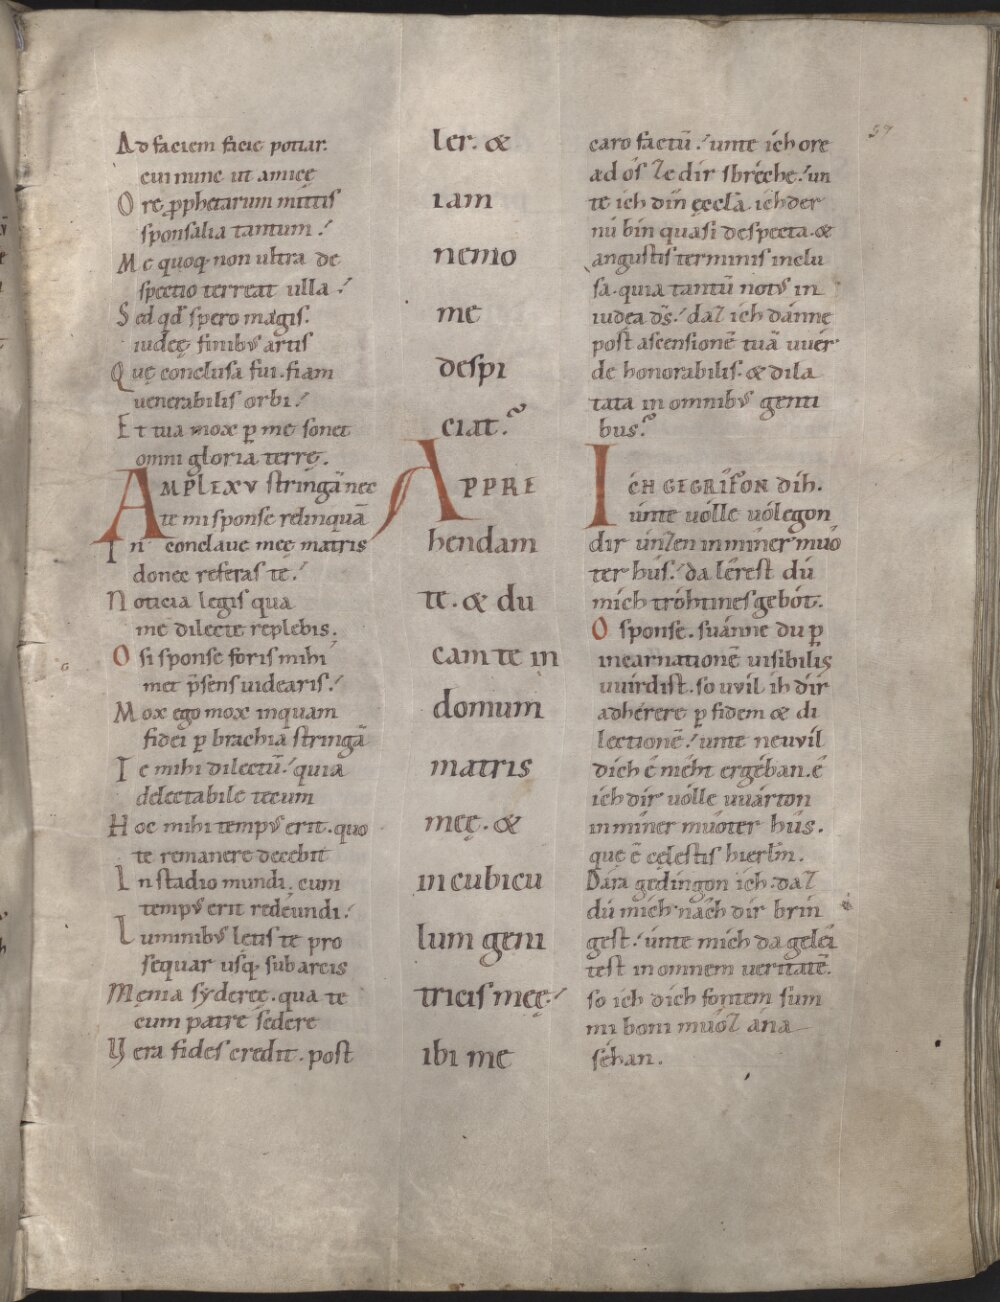 57
Ad faciem facie potiar.
cui nunc ut amicę
Ore ꝓphetarum mittis
sponsalia tantum.
Me quoq; non ultra de
spectio terreat ulla.
Sed qđ spero magis.
iudeę finibꝰ artis
Quę conclusa fui. fiam
venerabilis orbi.
Et tua mox ꝑ me sonet
omni gloria terrę.
AMPLEXV stringā nec
te mi sponse relinquā
In conclave meę matris
donec referas te.
Noticia legis qua
me dilecte replebis.
O si sponse foris mihi
met p̄sens videaris.
Mox ego mox inquam
fidei ꝑ brachia stringā
Te mihi dilectū. quia
delectabile tecum
Hoc mihi tempꝰ erit. quo
te remanere decebit
In stadio mundi. cum
tempꝰ erit redeundi.
Luminibꝰ letis te pro
sequar usq; sub arcis
Męnia sydereę. qua te
cum patre sedere
Vera fides credit. post
ler. &
iam
nemo
me
despi
ciat.
APPRE
hendam
te. & du
cam te in
domum
matris
meę. &
in cubicu
lum geni
tricis meę.
ibi me
caro factū. unte ich ore
ad os ze dir spréche. un
te ich din ęccła. ich der
nu bin quasi despecta. &
angustis terminis inclu
sa. quia tantū notꝰ in
iudea d̄s. daz ich dánne
post ascensionē tuā vuér
de honorabilis. & dila
tata in omnibꝰ genti
bus.
ICH GEGRIFON dih.
únte uólle uólegon
dir únzen in míner muó
ter hús. da lérest dú
mich tróhtines gebót.
O sponse. suánne du ꝑ
incarnationē visibilis
vuirdist. so vvil ih dir
adhęrere ꝑ fidem & di
lectionē. unte nevvil
dich é nieht ergéban. é
ich dir uólle vvárton
in míner muóter hús.
quę ē cęlestis hierłm.
Dára gedíngon ich. daz
dú mich nâch dir brín
gest. únte mich da geleí
test in omnem veritatē.
so ich dich fontem sum
mi boni muóz ána
séhan.